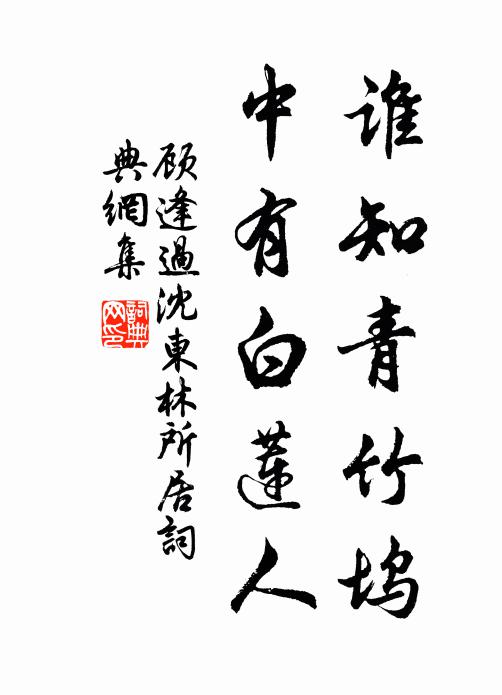 谁知青竹坞
中有白蓮人
顾逢過沈東林所居詞
典網集
詞典
网印